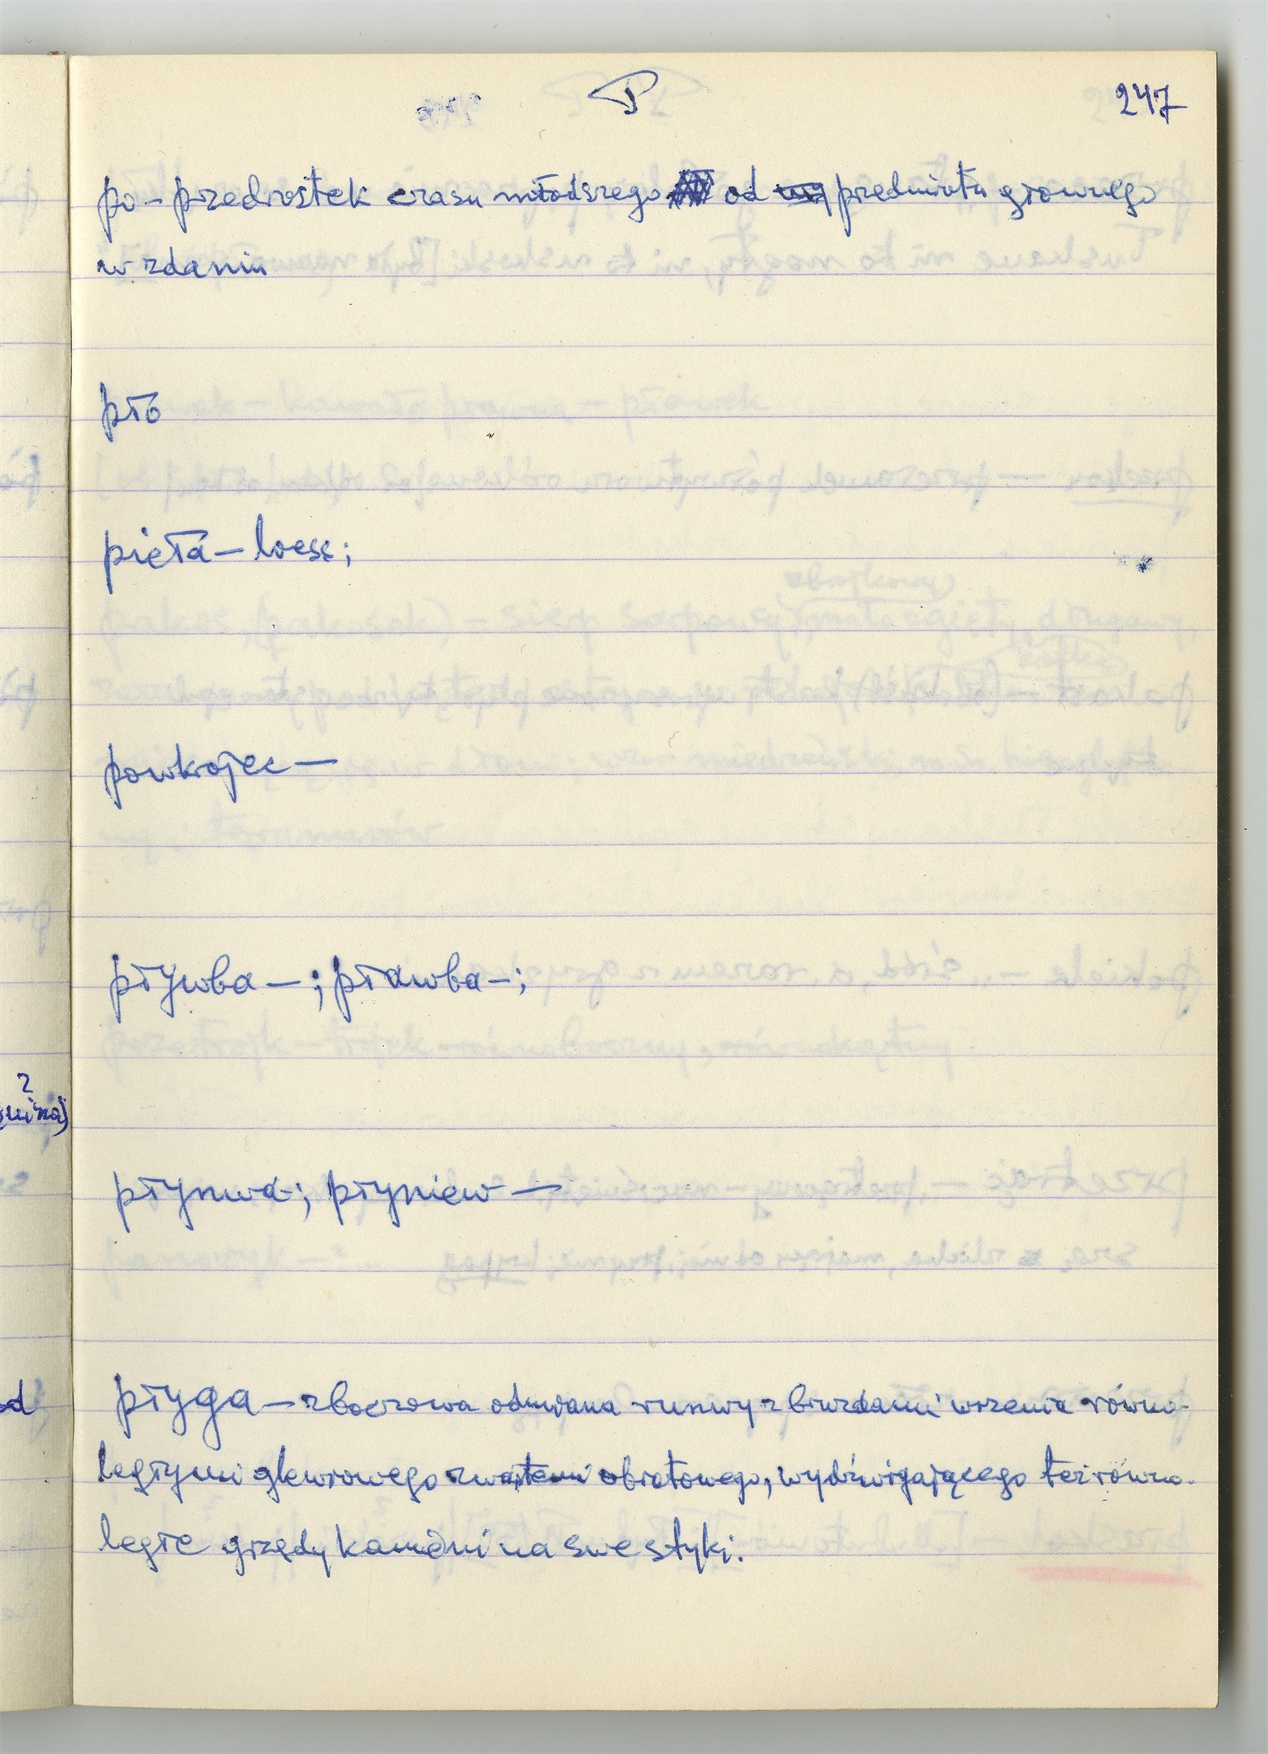 P
247
po – przedrostek czasu młodszego od predmiotu głownego
w zdaniu
pło
pieła – loess;
powkrojec –
pływba – ; pławba – ;
płynwa; płyniew –
płyga – zboczowa odmiana runwy z bruzdami wrzenia równo-
ległymi glewowego obrotowego, wydźwigającego też równo-
ległe grzędy kamieni na swe styki.